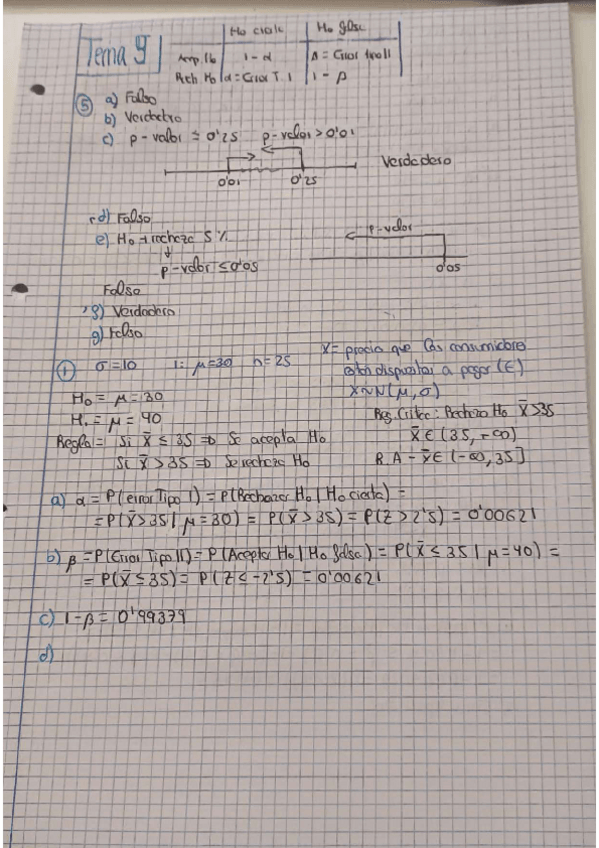 Tema 9
Ho cierta Ho falsa
Acep. Ho 1-α β = Error tipo II
Rech Ho α = Error T. I 1-β
⑤ a) Falso
b) Verdadero
c) p-valor ≤ 0'25 p-valor > 0'01
Verdadero
0'01 0'25
d) Falso
e) Ho → rechaza 5%
p-valor
↓
p-valor ≤ 0'05
0'05
Falso
Verdadero
g) Falso
① σ=10 μ=30 n=25
X = precio que los consumidores
están dispuestos a pagar (€)
X∼N(μ,σ)
Ho = μ = 30
H₁ = μ = 40
Reg. Crítica: Rechazo Ho x̄>35
x̄ ∈ (35, +∞)
R.A - x̄ ∈ (-∞, 35]
Regla = Si x̄ ≤ 35 ⇒ Se acepta Ho
Si x̄ > 35 ⇒ Se rechaza Ho
a) α = P(error Tipo I) = P(Rechazar Ho | Ho cierta) =
= P(x̄>35 | μ=30) = P(x̄>35) = P(Z>2'5) = 0'00621
b) β = P(Error Tipo II) = P(Aceptar Ho | Ho falsa) = P(x̄ ≤ 35 | μ=40) =
= P(x̄ ≤ 35) = P(Z ≤ -2'5) = 0'00621
c) 1-β = 0'99379
d)